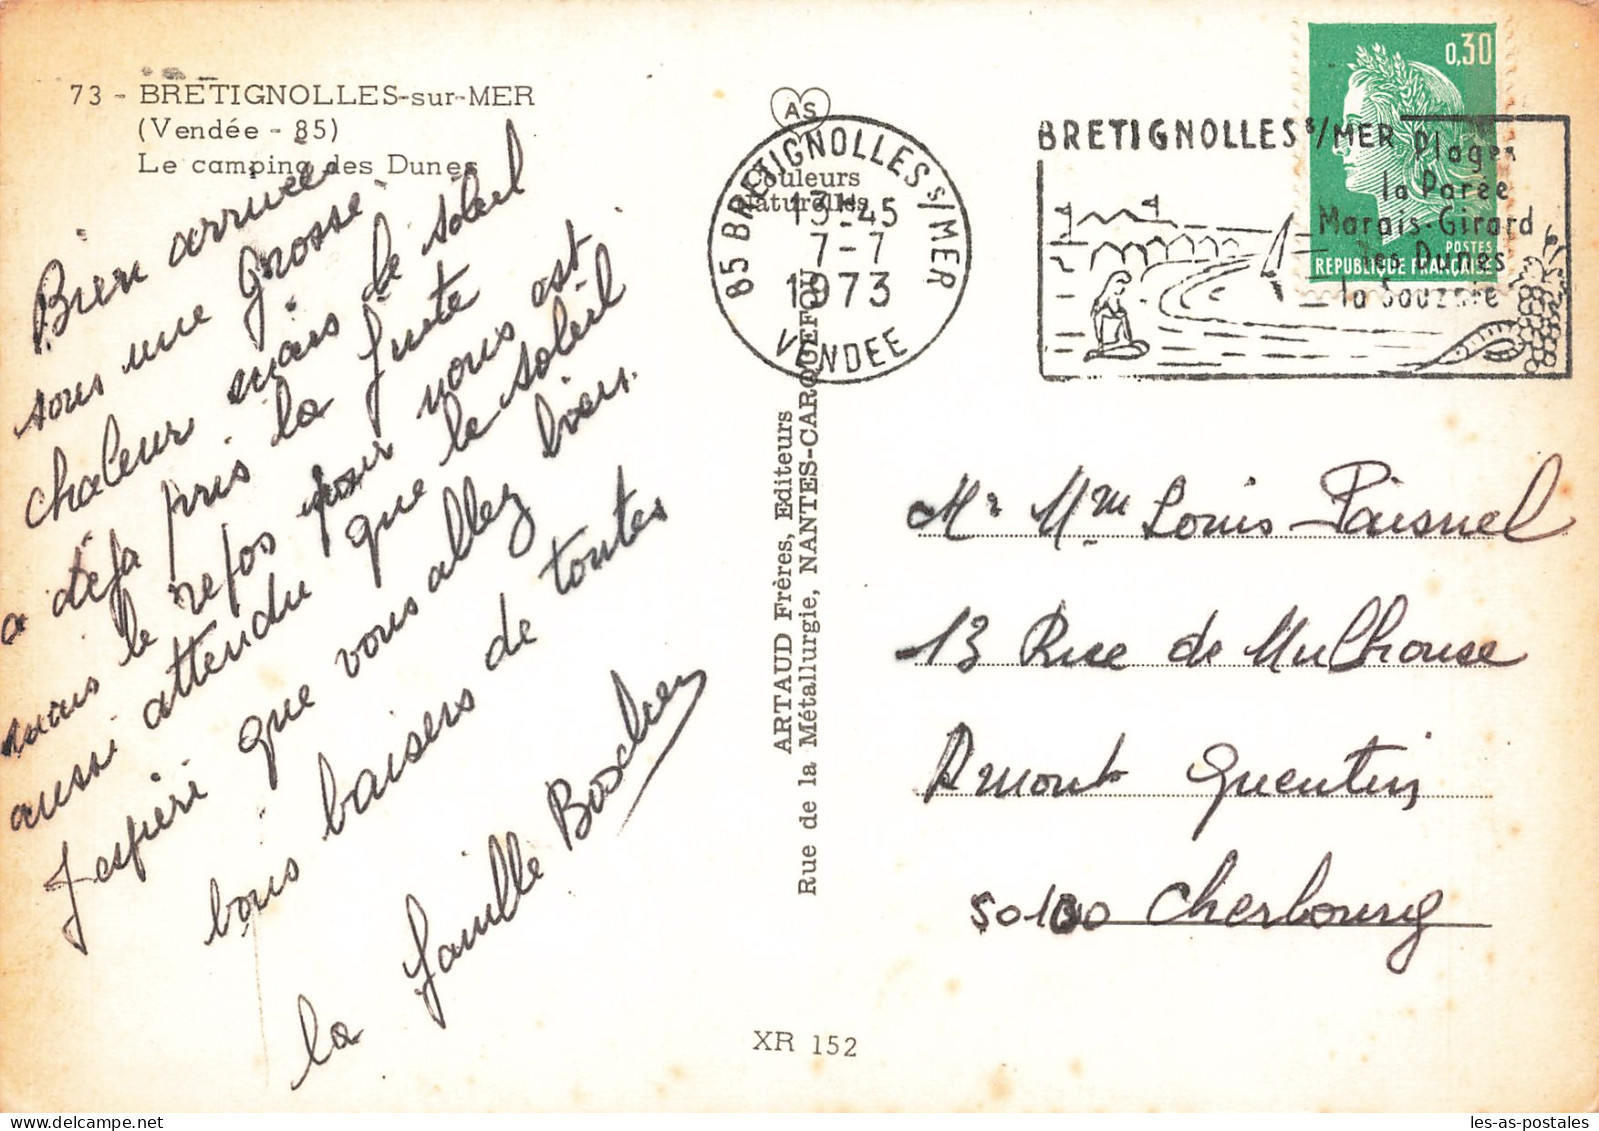 73 - BRETIGNOLLES-sur-MER
(Vendée - 85)
Le camping des Dunes
Bien arrivée
sous une grosse
chaleur mais le soleil
a deja pris la fuite
mais le repos pour nous est
aussi attendu que le soleil
J'espére que vous allez bien.
bons baisers de toutes
la famille Boscher
AS
Couleurs
Naturelles
85 BRETIGNOLLES S/MER
13H45
7-7
1973
VENDEE
ARTAUD Frères, Editeurs
Rue de la Métallurgie, NANTES-CARQUEFOU
XR 152
BRETIGNOLLES S/MER
Plages
la Parée
Marais-Girard
les Dunes
la Sauzaie
0,30
POSTES
REPUBLIQUE FRANÇAISE
Mr Mme Louis Paisnel
13 Rue de Mulhouse
Amont Quentin
50100 Cherbourg
les-as-postales